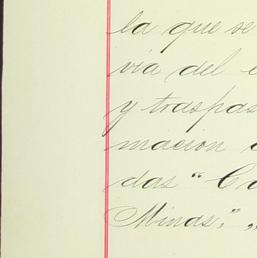 la que se
via del
y traspas
macion
das "Co
Minas,"